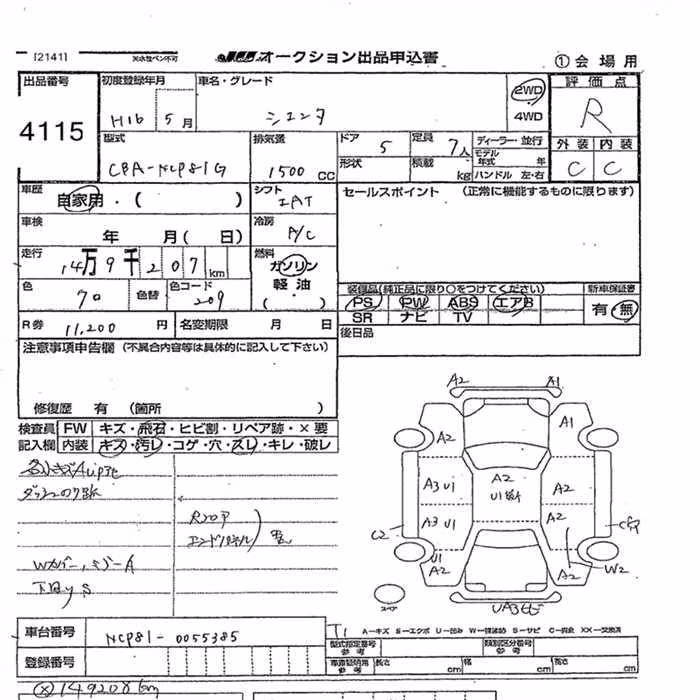 [2141]
天水性ペン不可
JCC オークション出品申込書
① 会場用
出品番号 4115
初度登録年月 H16 5月
車名・グレード シエンタ
2WD
4WD
評価点 R
型式 CBA-NCP81G
排気量 1500 cc
ドア 5
形状
定員 7人
積載 kg
ディーラー・並行
モデル年式 年
ハンドル 左・右
外装 内装
C C
車歴 自家用・( )
シフト IAT
セールスポイント (正常に機能するものに限ります)
車検 年 月( 日)
冷房 A/C
走行 14万9千207km
燃料 ガソリン 軽油 ( )
色 70 色替
色コード 209
装備品(純正品に限り○をつけてください)
PS PW ABS エアB
SR ナビ TV
新車保証書 有 無
R券 11,200 円 名変期限 月 日
後日品
注意事項申告欄 (不具合内容等は具体的に記入して下さい)
修復歴 有 (箇所 )
検査員 FW キズ・飛石・ヒビ割・リペア跡・×要
記入欄 内装 キズ・汚レ・コゲ・穴・スレ・キレ・破レ
Rフロア
エンドパネル
WカバーミラーA
下回りS
A2 A1
A2 A1
A3 U1 A2 A2
A3 U1 A2
C2
U1
A2 A2 W2
スペア
車台番号 NCP81-0055385
登録番号
A-キズ E-エクボ U-凹み W-補修跡 S-サビ C-腐食 XX-交換済
型式指定番号 参考
類別区分番号 参考
車庫証明用 参考 長さ cm 幅 cm 高さ cm
149208km